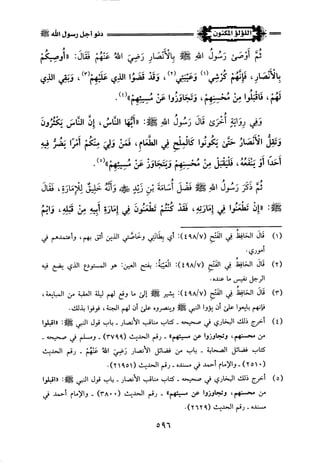 اللؤلؤ المكنون
دنو أجل رسول الله ﷺ
ثُمَّ أَوْصَىٰ رَسُولُ اللهِ ﷺ بِالْأَنْصَارِ رَضِيَ اللهُ عَنْهُمْ فَقَالَ: «أُوصِيكُمْ
بِالْأَنْصَارِ، فَإِنَّهُمْ كَرِشِي(١) وَعَيْبَتِي(٢)، وَقَدْ قَضَوُا الذِي عَلَيْهِمْ(٣)، وَبَقِيَ الذِي
لَهُمْ، فَاقْبَلُوا مِنْ مُحْسِنِهِمْ، وَتَجَاوَزُوا عَنْ مُسِيئِهِمْ»(٤).
وَفِي رِوَايَةٍ أُخْرَىٰ قَالَ رَسُولُ اللهِ ﷺ: «أَيُّهَا النَّاسُ، إِنَّ النَّاسَ يَكْثُرُونَ
وَتَقِلُّ الْأَنْصَارُ حَتَّىٰ يَكُونُوا كَالْمِلْحِ فِي الطَّعَامِ، فَمَنْ وَلِيَ مِنْكُمْ أَمْرًا يَضُرُّ فِيهِ
أَحَدًا أَوْ يَنْفَعُهُ، فَلْيَقْبَلْ مِنْ مُحْسِنِهِمْ وَيَتَجَاوَزْ عَنْ مُسِيئِهِمْ»(٥).
ثُمَّ ذَكَرَ رَسُولُ اللهِ ﷺ فَضْلَ أُسَامَةَ بْنِ زَيْدٍ ﷺ وَأَنَّهُ خَلِيقٌ لِلْإِمَارَةِ، فَقَالَ
ﷺ: «إِنْ تَطْعَنُوا فِي إِمَارَتِهِ، فَقَدْ كُنْتُمْ تَطْعَنُونَ فِي إِمَارَةِ أَبِيهِ مِنْ قَبْلِهِ، وَايْمُ
(١) قال الحافظ في الفتح (٤٩٨/٧): أي بِطَانَتِي وخاصَّتي الذين أثق بهم، وأعتمدهم في
أموري.
(٢) قال الحافظ في الفتح (٤٩٨/٧): العَيْبَةُ: بفتح العين: هو المستودع الذي يضع فيه
الرجل نفيس ما عنده.
(٣) قال الحافظ في الفتح (٤٩٨/٧): يشير ﷺ إلى ما وقع لهم ليلة العقبة من المبايعة،
فإنهم بايعوا على أن يؤوا النبي ﷺ وينصروه على أن لهم الجنة، فوفوا بذلك.
(٤) أخرج ذلك البخاري في صحيحه - كتاب مناقب الأنصار - باب قول النبي ﷺ: «اقبلوا
من محسنهم، وتجاوزوا عن مسيئهم» - رقم الحديث (٣٧٩٩) - ومسلم في صحيحه -
كتاب فضائل الصحابة - باب من فضائل الأنصار رَضِيَ اللهُ عَنْهُمْ - رقم الحديث
(٢٥١٠) - والإمام أحمد في مسنده - رقم الحديث (٢١٩٥١).
(٥) أخرج ذلك البخاري في صحيحه - كتاب مناقب الأنصار - باب قول النبي ﷺ: «اقبلوا
من محسنهم، وتجاوزوا عن مسيئهم» - رقم الحديث (٣٨٠٠) - والإمام أحمد في
مسنده - رقم الحديث (٢٦٢٩).
٥٩٦